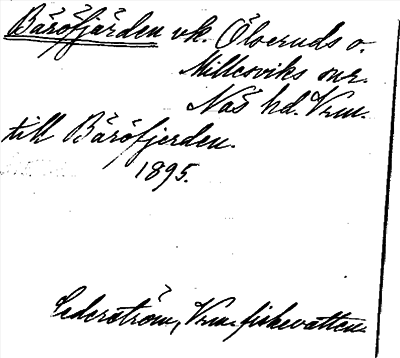 Båröfjärden vk. Ölseruds o.
Millesviks snr.
Näs hd. Vrm.
till Båröfjerden.
1895.
Cederström, Vrm. fiskevatten